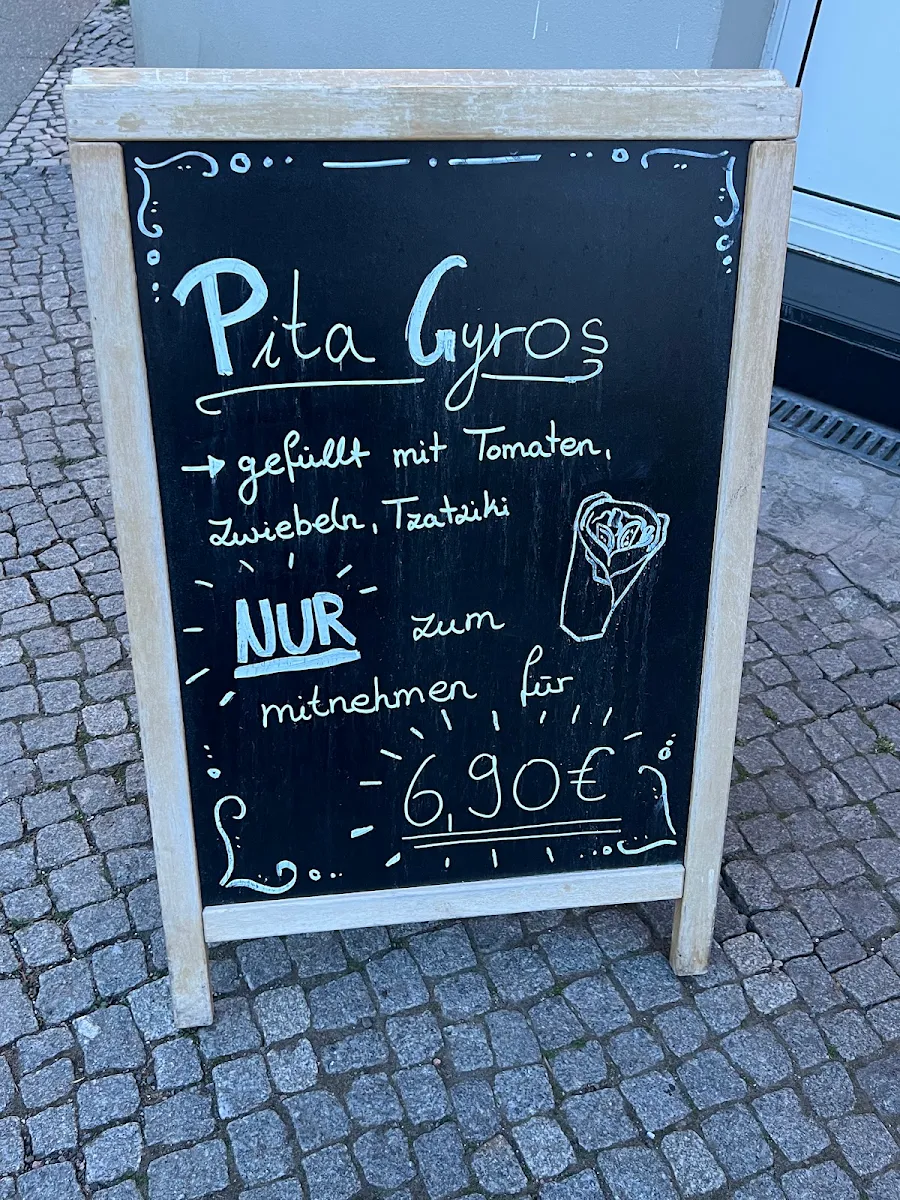 Pita Gyros
→ gefüllt mit Tomaten,
Zwiebeln, Tzatziki
NUR zum
mitnehmen für
6,90€